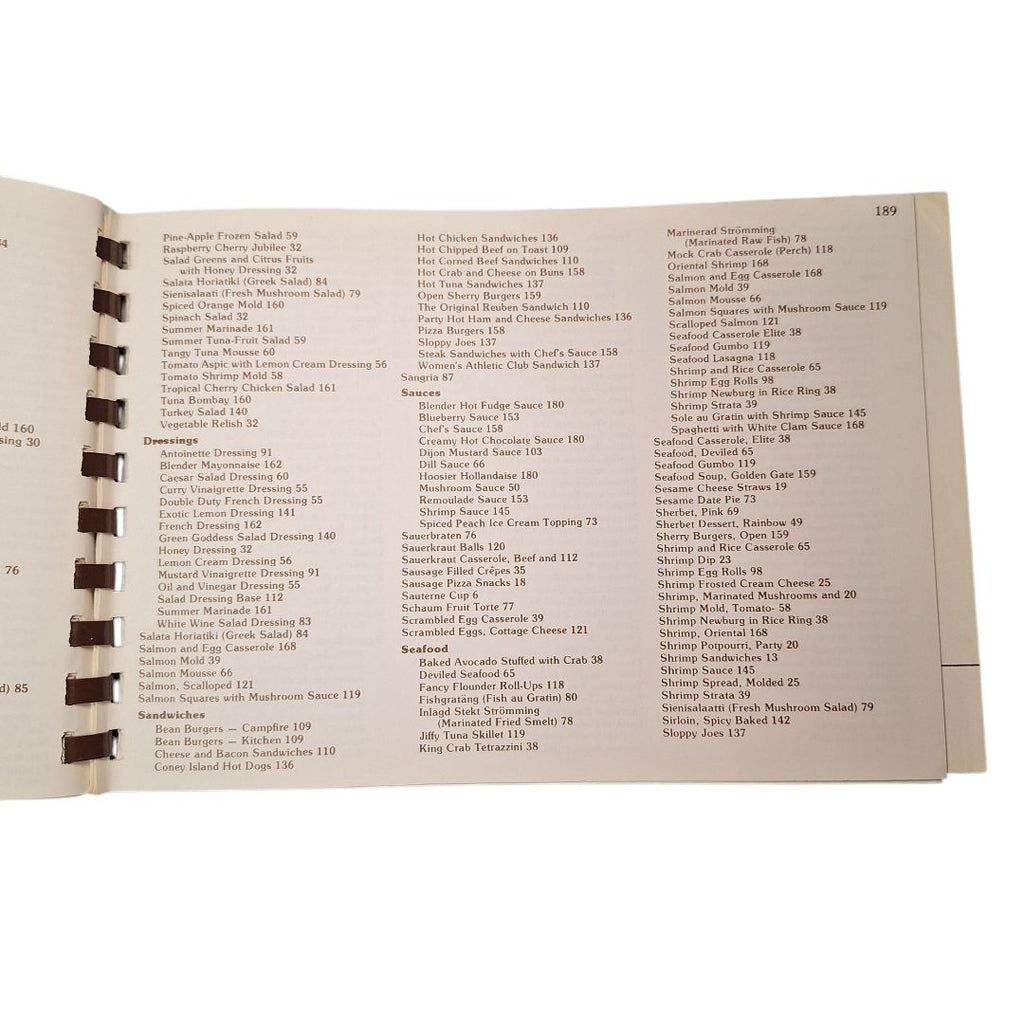 34
ld 160
sing 30
76
d) 85
189
Pine-Apple Frozen Salad 59
Raspberry Cherry Jubilee 32
Salad Greens and Citrus Fruits
with Honey Dressing 32
Salata Horiatiki (Greek Salad) 84
Sienisalaati (Fresh Mushroom Salad) 79
Spiced Orange Mold 160
Spinach Salad 32
Summer Marinade 161
Summer Tuna-Fruit Salad 59
Tangy Tuna Mousse 60
Tomato Aspic with Lemon Cream Dressing 56
Tomato Shrimp Mold 58
Tropical Cherry Chicken Salad 161
Tuna Bombay 160
Turkey Salad 140
Vegetable Relish 32
Dressings
Antoinette Dressing 91
Blender Mayonnaise 162
Caesar Salad Dressing 60
Curry Vinaigrette Dressing 55
Double Duty French Dressing 55
Exotic Lemon Dressing 141
French Dressing 162
Green Goddess Salad Dressing 140
Honey Dressing 32
Lemon Cream Dressing 56
Mustard Vinaigrette Dressing 91
Oil and Vinegar Dressing 55
Salad Dressing Base 112
Summer Marinade 161
White Wine Salad Dressing 83
Salata Horiatiki (Greek Salad) 84
Salmon and Egg Casserole 168
Salmon Mold 39
Salmon Mousse 66
Salmon, Scalloped 121
Salmon Squares with Mushroom Sauce 119
Sandwiches
Bean Burgers — Campfire 109
Bean Burgers — Kitchen 109
Cheese and Bacon Sandwiches 110
Coney Island Hot Dogs 136
Hot Chicken Sandwiches 136
Hot Chipped Beef on Toast 109
Hot Corned Beef Sandwiches 110
Hot Crab and Cheese on Buns 158
Hot Tuna Sandwiches 137
Open Sherry Burgers 159
The Original Reuben Sandwich 110
Party Hot Ham and Cheese Sandwiches 136
Pizza Burgers 158
Sloppy Joes 137
Steak Sandwiches with Chef's Sauce 158
Women's Athletic Club Sandwich 137
Sangria 87
Sauces
Blender Hot Fudge Sauce 180
Blueberry Sauce 153
Chef's Sauce 158
Creamy Hot Chocolate Sauce 180
Dijon Mustard Sauce 103
Dill Sauce 66
Hoosier Hollandaise 180
Mushroom Sauce 50
Remoulade Sauce 153
Shrimp Sauce 145
Spiced Peach Ice Cream Topping 73
Sauerbraten 76
Sauerkraut Balls 120
Sauerkraut Casserole, Beef and 112
Sausage Filled Crêpes 35
Sausage Pizza Snacks 18
Sauterne Cup 6
Schaum Fruit Torte 77
Scrambled Egg Casserole 39
Scrambled Eggs, Cottage Cheese 121
Seafood
Baked Avocado Stuffed with Crab 38
Deviled Seafood 65
Fancy Flounder Roll-Ups 118
Fishgratäng (Fish au Gratin) 80
Inlagd Stekt Strömming
(Marinated Fried Smelt) 78
Jiffy Tuna Skillet 119
King Crab Tetrazzini 38
Marinerad Strömming
(Marinated Raw Fish) 78
Mock Crab Casserole (Perch) 118
Oriental Shrimp 168
Salmon and Egg Casserole 168
Salmon Mold 39
Salmon Mousse 66
Salmon Squares with Mushroom Sauce 119
Scalloped Salmon 121
Seafood Casserole Elite 38
Seafood Gumbo 119
Seafood Lasagna 118
Shrimp and Rice Casserole 65
Shrimp Egg Rolls 98
Shrimp Newburg in Rice Ring 38
Shrimp Strata 39
Sole au Gratin with Shrimp Sauce 145
Spaghetti with White Clam Sauce 168
Seafood Casserole, Elite 38
Seafood, Deviled 65
Seafood Gumbo 119
Seafood Soup, Golden Gate 159
Sesame Cheese Straws 19
Sesame Date Pie 73
Sherbet, Pink 69
Sherbet Dessert, Rainbow 49
Sherry Burgers, Open 159
Shrimp and Rice Casserole 65
Shrimp Dip 23
Shrimp Egg Rolls 98
Shrimp Frosted Cream Cheese 25
Shrimp, Marinated Mushrooms and 20
Shrimp Mold, Tomato- 58
Shrimp Newburg in Rice Ring 38
Shrimp, Oriental 168
Shrimp Potpourri, Party 20
Shrimp Sandwiches 13
Shrimp Sauce 145
Shrimp Spread, Molded 25
Shrimp Strata 39
Sienisalaatti (Fresh Mushroom Salad) 79
Sirloin, Spicy Baked 142
Sloppy Joes 137